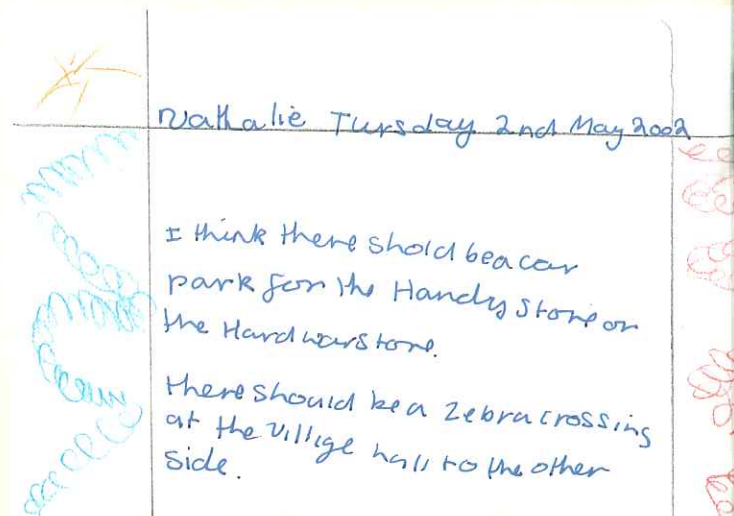 Nathalie Tursday 2nd May 2002
I think there shold be a car
park for the Handy Store or
the Hardwarstore.
there should be a zebra crossing
at the Villige hall to the other
side.